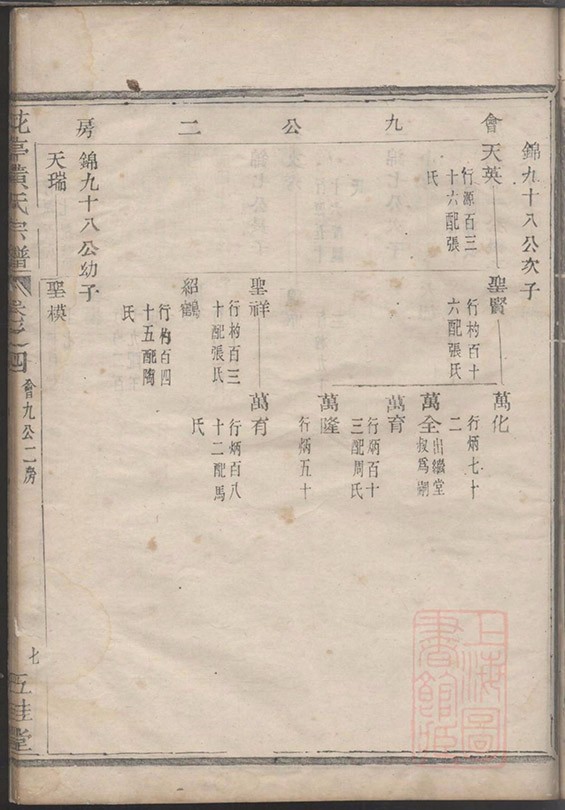 會九公二房
錦九十八公次子
天英
行源百三
十六配張
氏
聖賢
行杓百十
六配張氏
萬化
行炳七十
二
萬全
出繼堂
叔爲嗣
萬育
行炳百十
三配周氏
萬隆
行炳五十
聖祥
行杓百三
十配張氏
萬有
行炳百八
十二配馬
氏
紹鶴
行杓百四
十五配陶
氏
錦九十八公幼子
天瑞
聖模
黃氏宗譜
卷之四
會九公二房
七
五桂堂
上海圖
書館